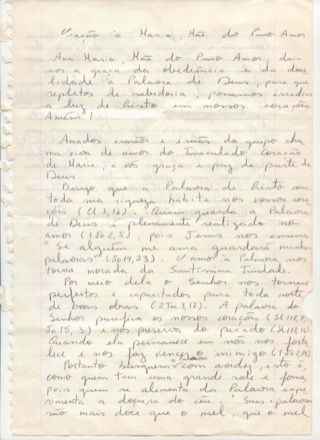 Oração à Maria, Mãe do Puro Amor
Ave Maria, Mãe do Puro Amor, dai-
nos a graça da obediência e da doci
lidade à Palavra de Deus, para que
repletos de sabedoria, possamos irradiar
a luz de Cristo em nossos corações
Amém!
Amados irmãos e irmãs do grupo cha
ma viva de amor do Imaculado Coração
de Maria, a vós graça e paz da parte de
Deus
Desejo que a Palavra de Cristo com
toda sua riqueza habite nos vossos cora
ções (Cl 3,16). Quem guarda a Palavra
de Deus é plenamente realizado no
amor (1Jo 2,5), pois Jesus nos ensina
"Se alguém me ama guardará minha
palavra" (Jo 14,23). O amor à Palavra nos
torna morada da Santíssima Trindade.
Por meio dela o Senhor nos torna
perfeitos e capacitados para toda sorte
de boas obras (2Tm 3,17). A palavra do
Senhor purifica os nossos corações (Sl 118,9,
Jo 15,3) e nos preserva do pecado (Sl 118,11)
Quando ela permanece em nós nos forta
lece e nos faz vencer o inimigo (1Jo 2,14)
Portanto busquem a Palavra com avidez, isto é,
como quem tem uma grande sede e fome,
pois quem se alimenta da Palavra expe
rimenta a doçura do céu. "Suas palavras
são mais doce que o mel, que o mel